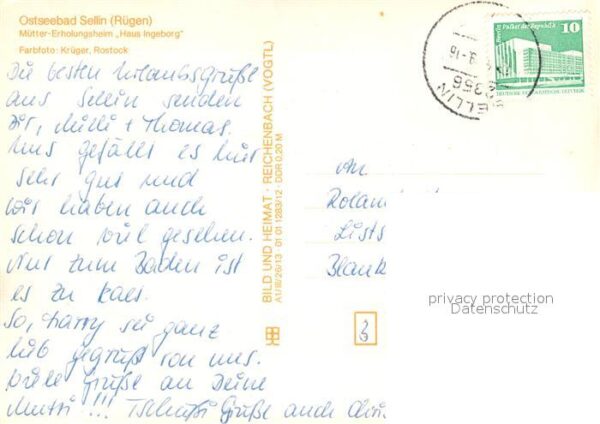 Ostseebad Sellin (Rügen)
Mütter-Erholungsheim „Haus Ingeborg“
Farbfoto: Krüger, Rostock
Die besten Urlaubsgrüße
aus Sellin senden
Dir, + Thomas.
Uns gefällt es hier
sehr gut und
wir haben auch
schon viel gesehen.
Nur zum Baden ist
es zu kalt.
So, Harry sei ganz
lieb gegrüßt von uns.
Viele Grüße an Deine
Mutti !!! Tschüß Grüße auch
BILD UND HEIMAT · REICHENBACH (VOGTL)
A1/III/26/13 · 01 01 1283/12 · DDR 0,20 M
Berlin, Palast der Republik
10
DEUTSCHE DEMOKRATISCHE REPUBLIK
SELLIN
2356
An
Roland
Lists
Blank
privacy protection
Datenschutz